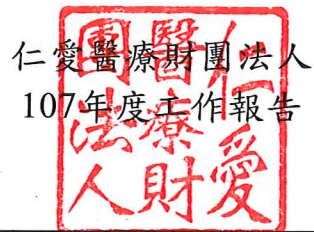 仁愛醫療財團法人
107年度工作報告
仁愛
醫療財
團法人